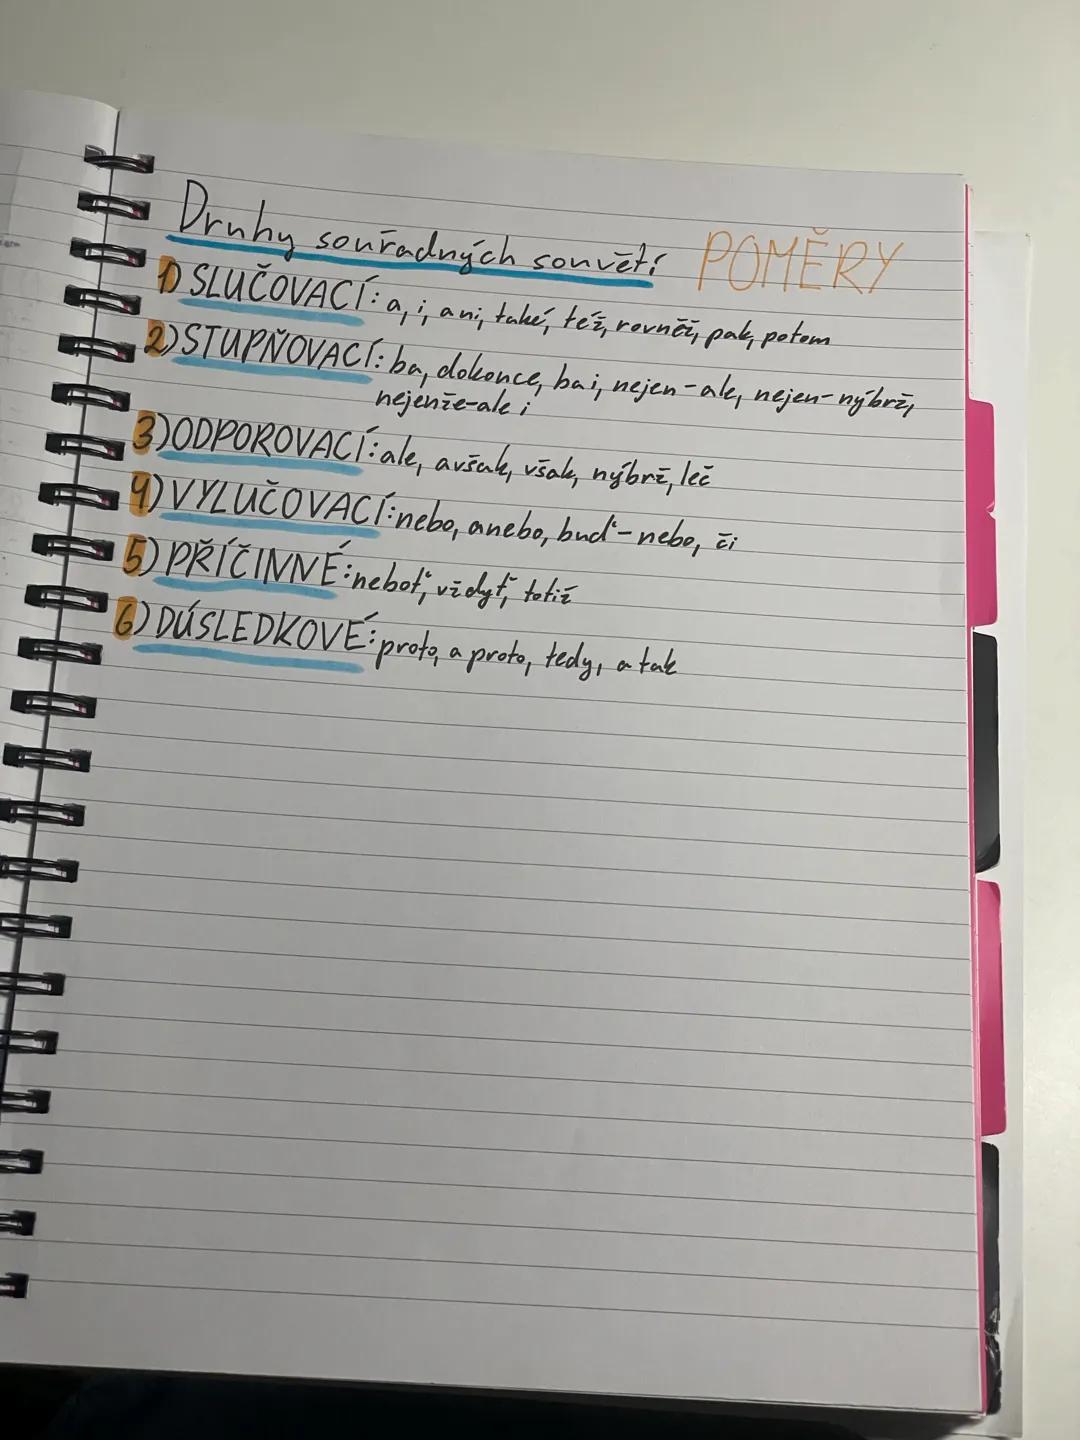 Druhy souřadných souvětí POMĚRY
1) SLUČOVACÍ: a, i, ani, také, též, rovněž, pak, potom
2) STUPŇOVACÍ: ba, dokonce, ba i, nejen-ale, nejen-nýbrž,
nejenže-ale i
3) ODPOROVACÍ: ale, avšak, však, nýbrž, leč
4) VYLUČOVACÍ: nebo, anebo, buď-nebo, či
5) PŘÍČINNÉ: neboť, vždyť, totiž
6) DÚSLEDKOVÉ: proto, a proto, tedy, a tak